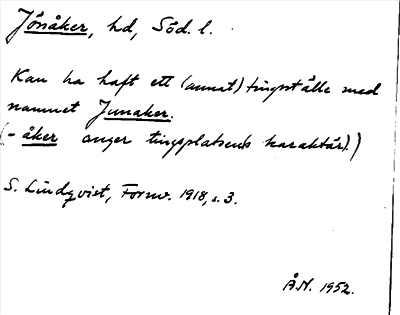 Jönåker, hd, Söd. l.
Kan ha haft ett (annat) tingställe med
namnet Junaker.
(-åker anger tingsplatsens karaktär).)
S. Lindqvist, Fornv. 1918, s. 3.
Å.N. 1952.